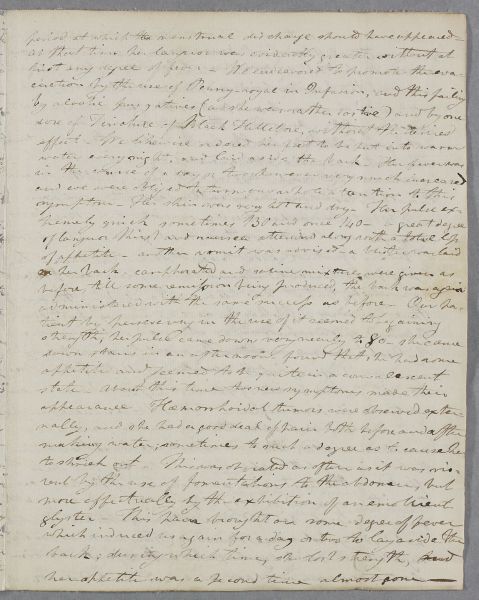 period at which the menstrual discharge should have appeared
at that time her languor was evidently greater without at
first any degree of fever - We endeavored to promote the eva-
cuation by the use of Pennyroyal in Infusion, and this failing
by aloetic purgatives (as she was rather costive) and by one
dose of Tincture of Black Hellebore, without the desired
effect - We likewise ordered her feet to be put into warm
water every night, and laid aside the bark - Her fever was
in the course of a day or two however very much increased
and we were obliged to turn our whole attention to this
symptom - Her skin was very hot and dry - Her pulse ex-
tremely quick sometimes 130 and once 140 - great degree
of languor, thirst and nausea attended along with a total loss
of appetite - another vomit was advised - a blister was laid
on her back - camphorated and saline mixtures were given as
before till some remission being produced, the bark was again
administered with the same success as before - Our pa-
tient by persevering in the use of it seemed to be gaining
strength, her pulse came down very nearly to 80 - she came
down stairs in an afternoon - found that she had some
appetite and seemed to be quite in a convalescent
state - About this time two new symptoms made their
appearance - Hæmorrhoidal tumors were observed exter-
nally, and she had a good deal of pain both before and after
making water; sometimes to such a degree as to cause her
to shriek out - This was obviated as often as it was vio-
lent by the use of fomentations to the abdomen, but
more effectually by the exhibition of an emollient
glyster - This pain brought on some degree of fever
which induced us again for a day or two to lay aside the
bark; during which time, she lost strength, and
her appetite was a second time almost gone